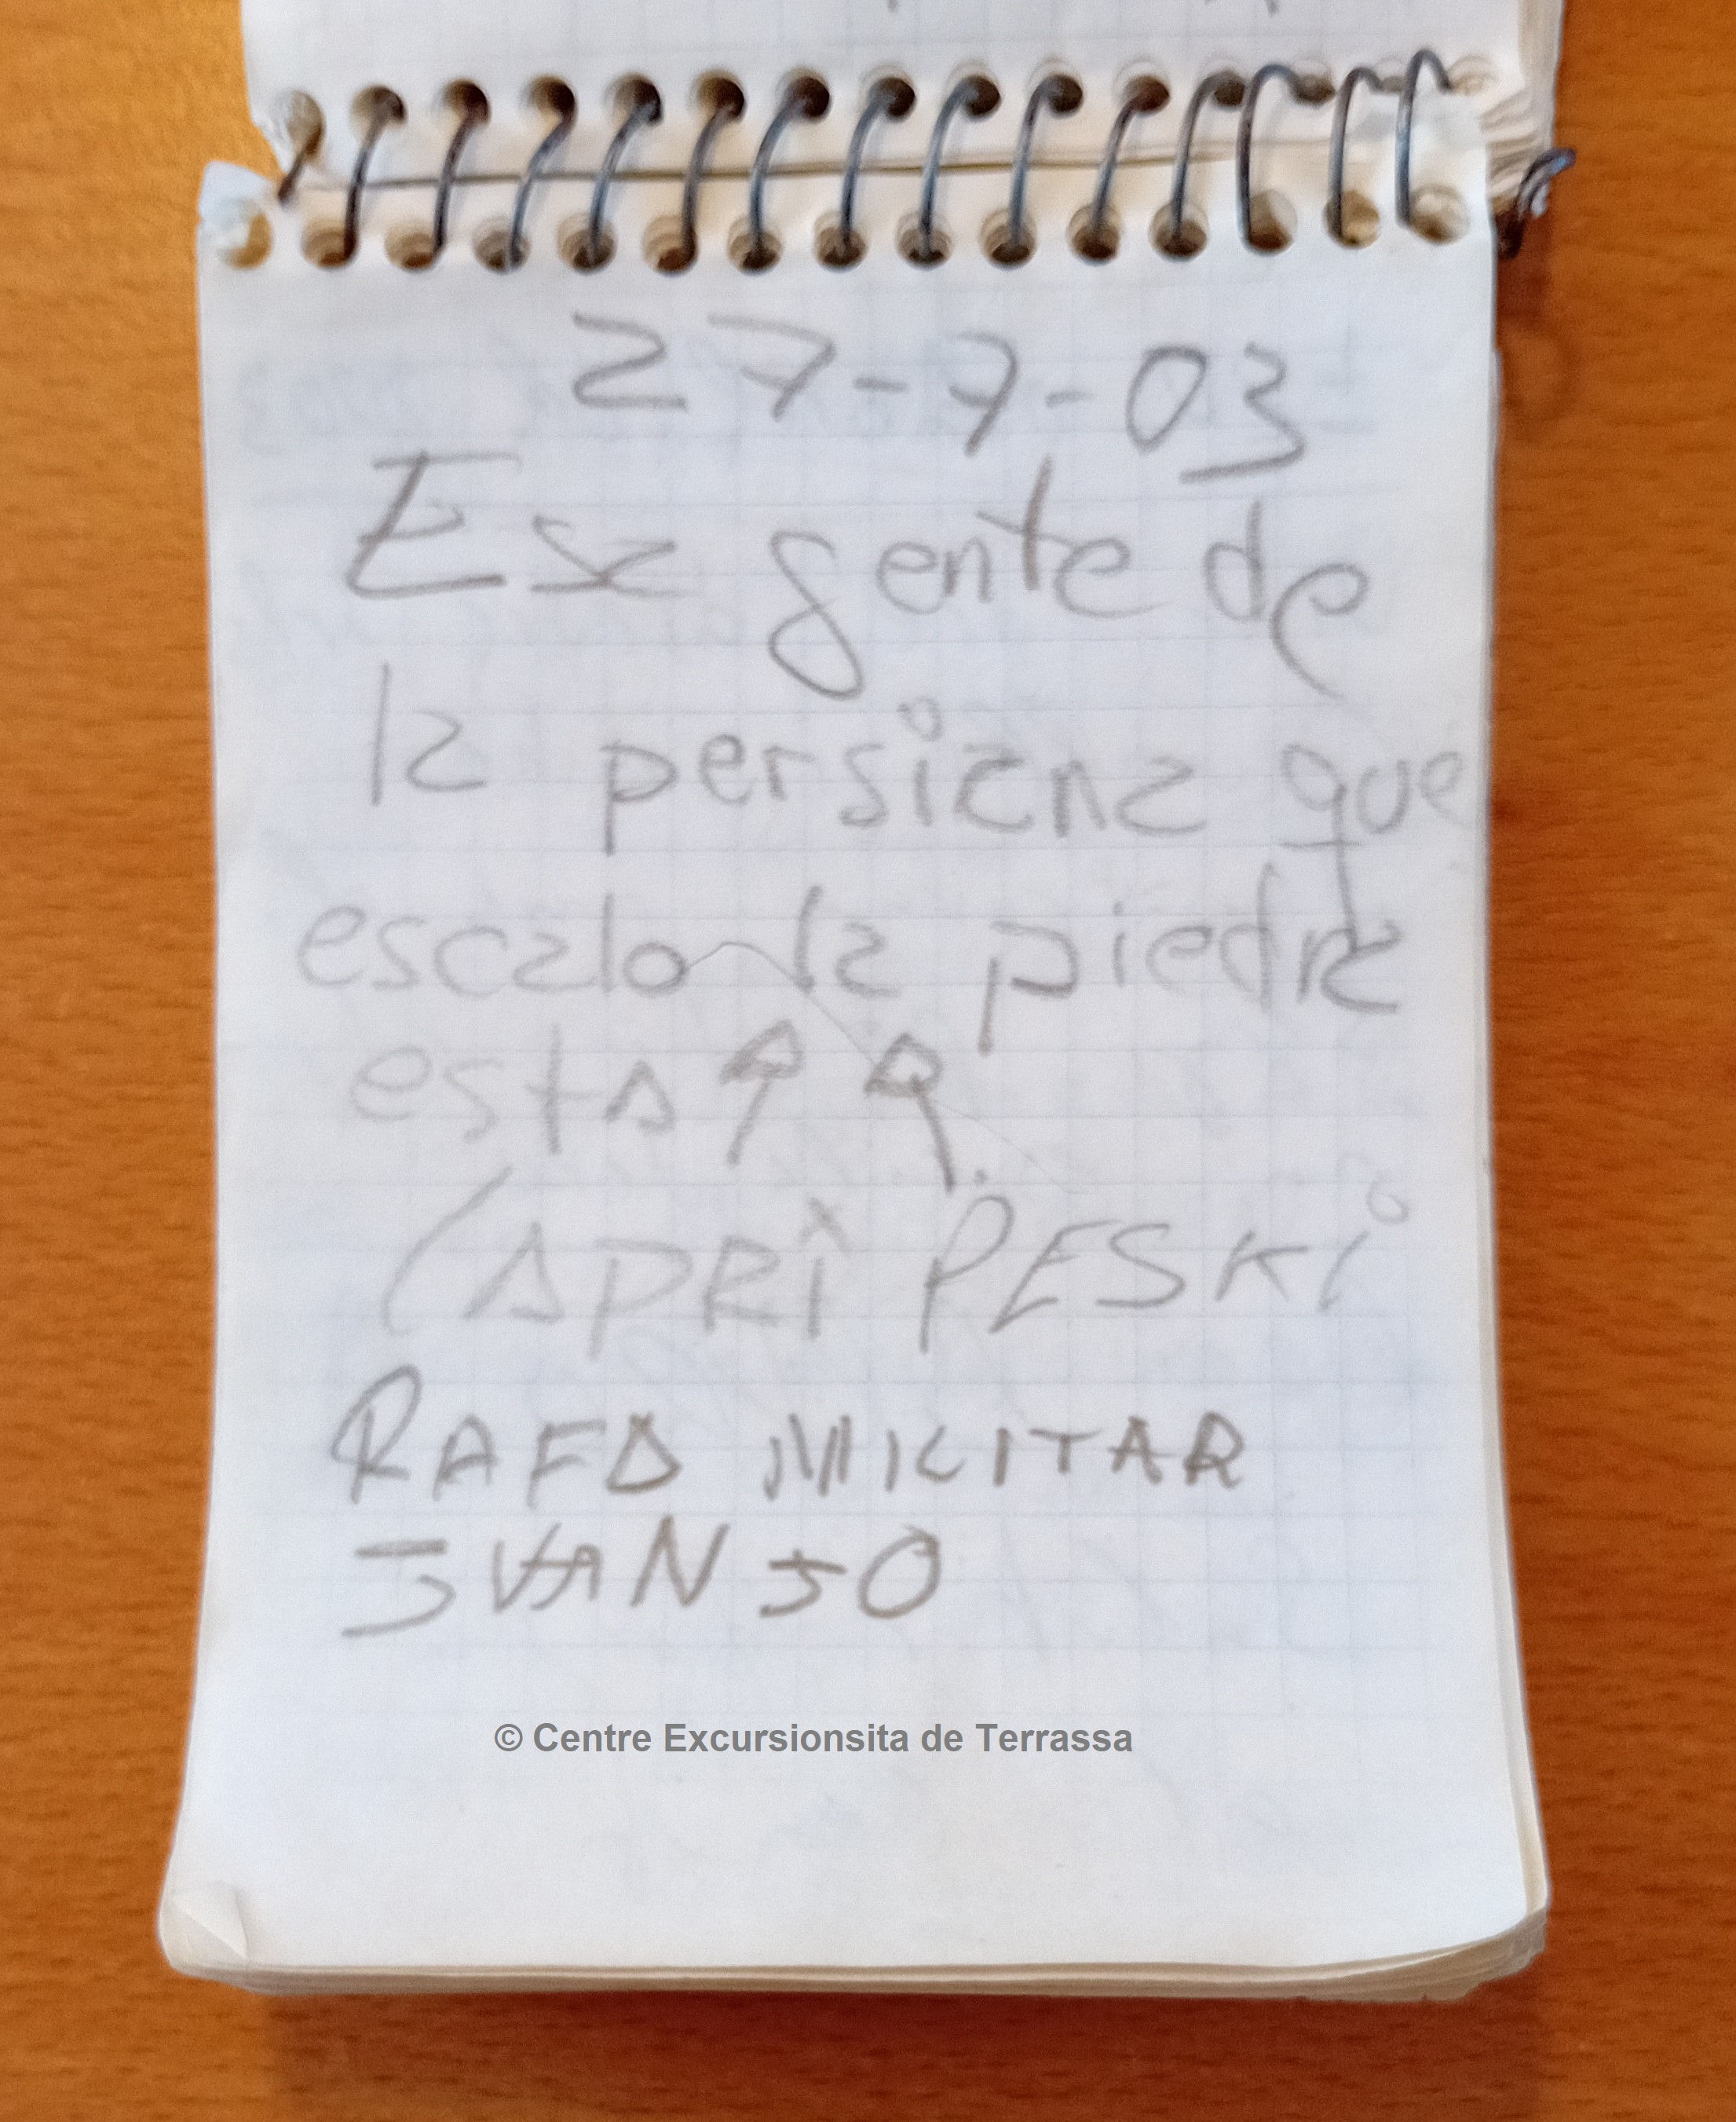 27-7-03
Esa gente de
la persiana que
escalo la piedra
esta
(ADRI PESKI
RAFA MILITAR
JUANJO
© Centre Excursionsita de Terrassa